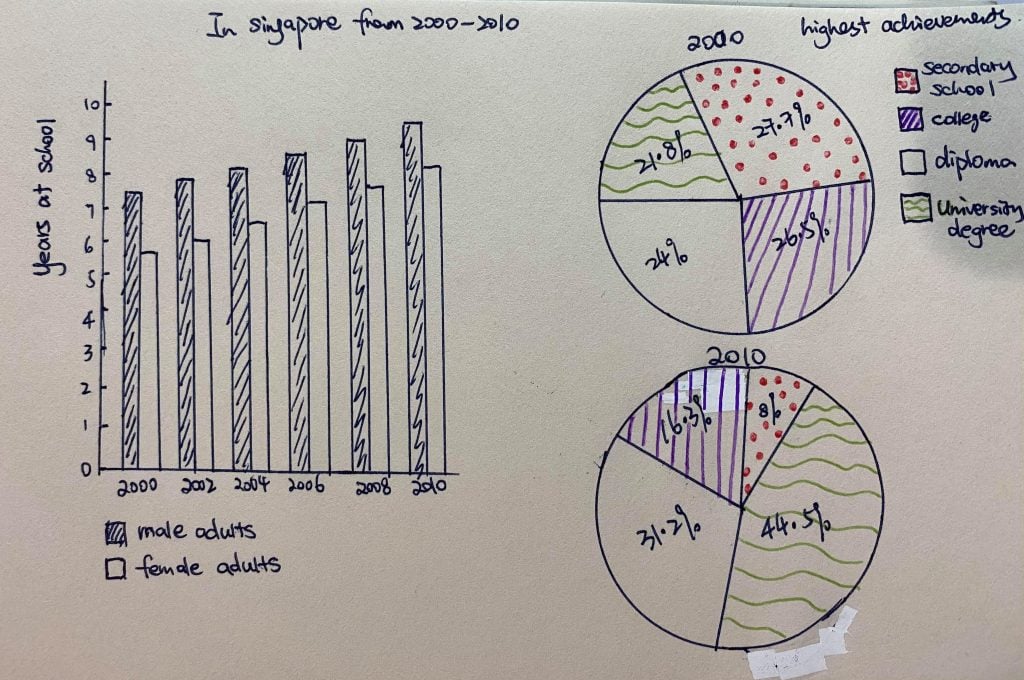 In Singapore from 2000-2010
Years at school
10
9
8
7
6
5
4
3
2
1
0
2000 2002 2004 2006 2008 2010
male adults
female adults
highest achievements
secondary
school
college
diploma
University
degree
2000
21.8%
27.7%
24%
26.5%
2010
16.3%
8%
31.2%
44.5%